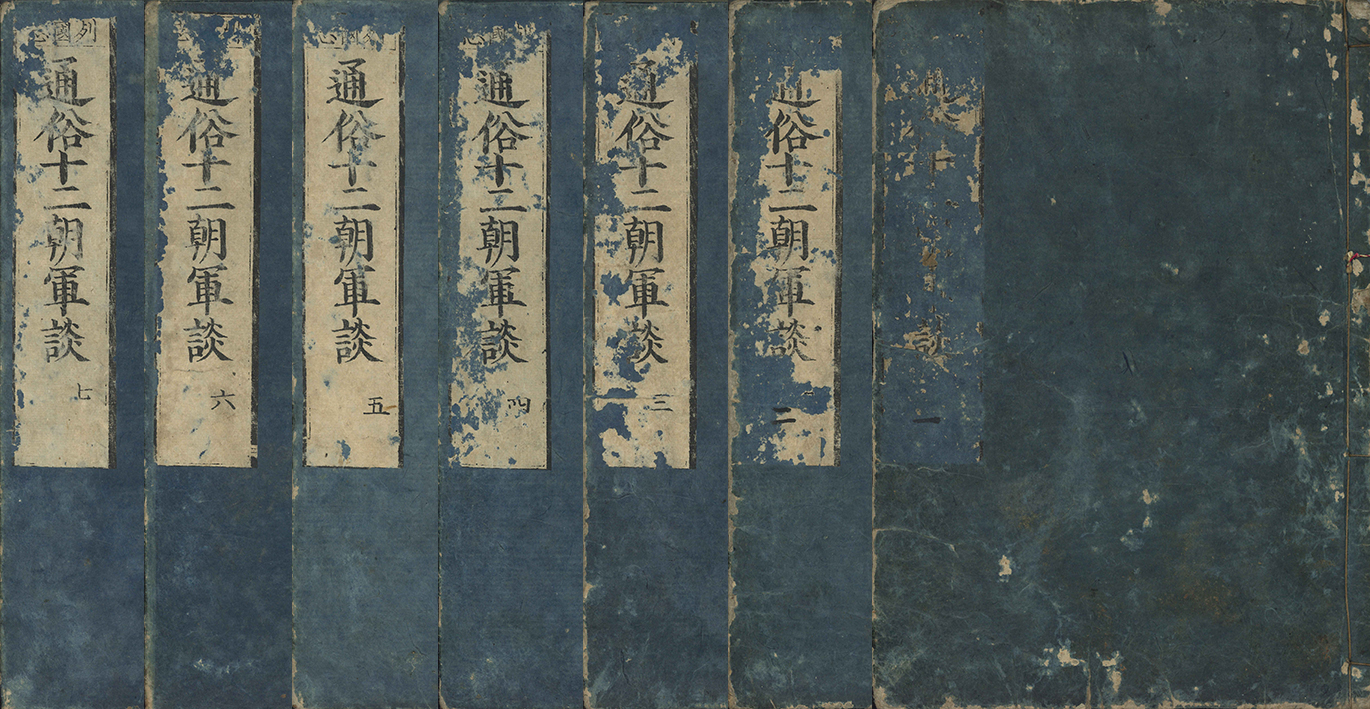 十
談
一
通俗十二朝軍談
二
通俗十二朝軍談
三
通俗十二朝軍談
四
通俗十二朝軍談
五
通俗十二朝軍談
六
列國
通俗十二朝軍談
七